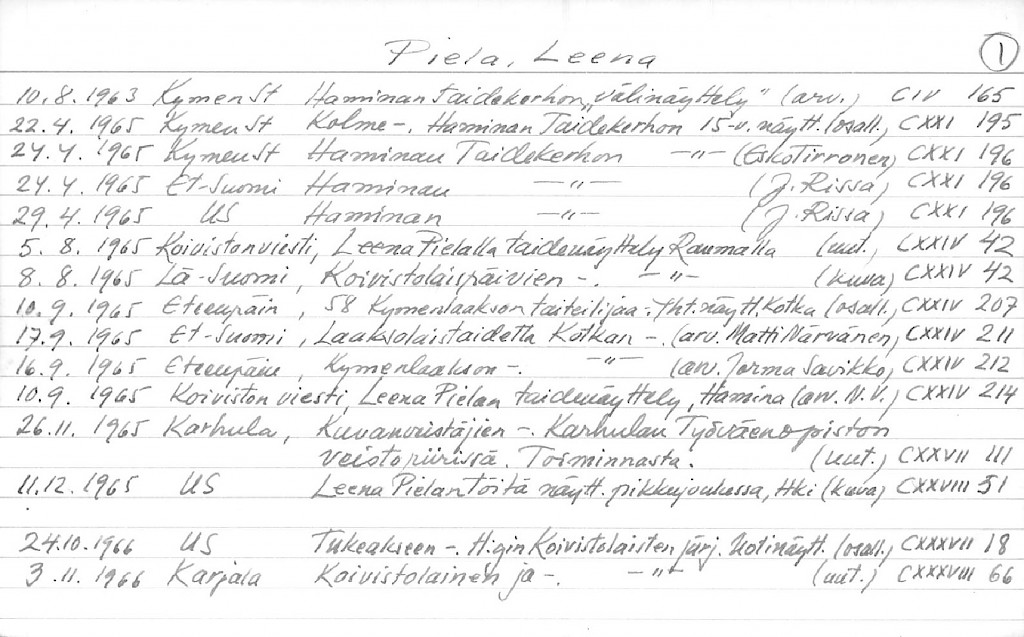 Piela, Leena
1
10.8.1963 KymenSt Haminan taidekerhon „välinäyttely" (arv.) CIV 165
22.4.1965 KymenSt Kolme-. Haminan Taidekerhon 15-v. näytt. (osall.) CXXI 195
24.4.1965 KymenSt Haminan Taidekerhon —"— (Esko Tirronen) CXXI 196
24.4.1965 Et-Suomi Haminan —"— (J. Rissa) CXXI 196
29.4.1965 US Haminan —"— (J. Rissa) CXXI 196
5.8.1965 Koivistonviesti, Leena Pielalla taidenäyttely Raumalla (uut.) CXXIV 42
8.8.1965 Lä-Suomi, Koivistolaispäivien -. —"— (kuva) CXXIV 42
10.9.1965 Eteenpäin, 58 Kymenlaakson taiteilijaa: Yht.näytt. Kotka (osall.) CXXIV 207
17.9.1965 Et-Suomi, Laaksolaistaidetta Kotkan -. (arv. Matti Närvänen) CXXIV 211
16.9.1965 Eteenpäin, Kymenlaakson -. —"— (arv. Jorma Savikko) CXXIV 212
10.9.1965 Koiviston viesti, Leena Pielan taidenäyttely, Hamina (arv. N.V.) CXXIV 214
26.11.1965 Karhula, Kuvanveistäjien -. Karhulan Työväenopiston
veistopiirissä. Toiminnasta. (uut.) CXXVII 111
11.12.1965 US Leena Pielan töitä näytt. pikkujoulussa, Hki (kuva) CXXVIII 51
24.10.1966 US Tukeakseen -. H:gin Koivistolaisten järj. Kotinäytt. (osall.) CXXXVII 18
3.11.1966 Karjala Koivistolainen ja -. —"— (uut.) CXXXVIII 66